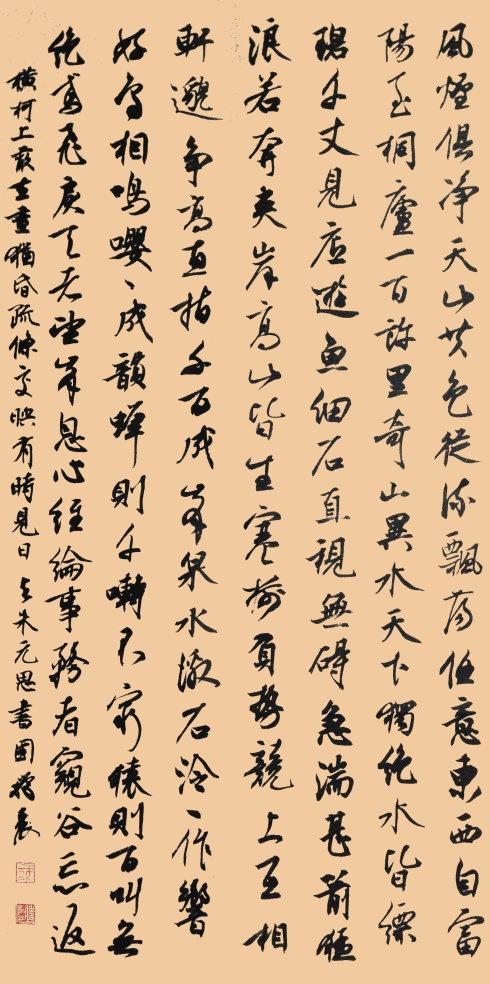 風煙俱净天山共色從流飄蕩任意東西自富
陽至桐廬一百許里奇山異水天下獨絶水皆縹
碧千丈見底遊魚細石直視無碍急湍甚箭猛
浪若奔夹岸高山皆生寒樹負勢競上互相
軒邈争高直指千百成峯泉水激石泠〻作響
好鳥相鳴嚶〻成韻蟬則千囀不窮猿則百叫無
絶鳶飛戾天者望峯息心經綸事務者窺谷忘返
横柯上蔽在晝猶昏疏條交映有時見日 与朱元思書